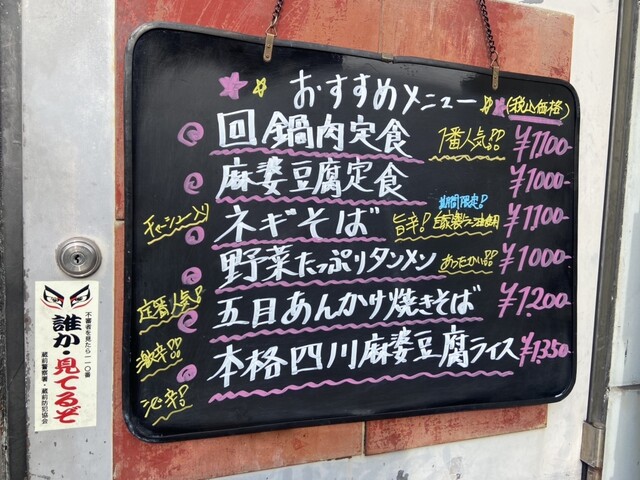 おすすめメニュー (税込価格)
回鍋肉定食 1番人気!! ¥1,100-
麻婆豆腐定食 ¥1000-
チャーシュー入り ネギそば 旨辛! 期間限定! 自家製ラー油使用 ¥1,100-
野菜たっぷりタンメン あったかい!! ¥1000-
定番人気! 五目あんかけ焼きそば ¥1,200-
激辛!! 本格四川麻婆豆腐ライス ¥1,350-
シビ辛!
不審者を見たら一一〇番
誰か・見てるぞ
蔵前警察署・蔵前防犯協会